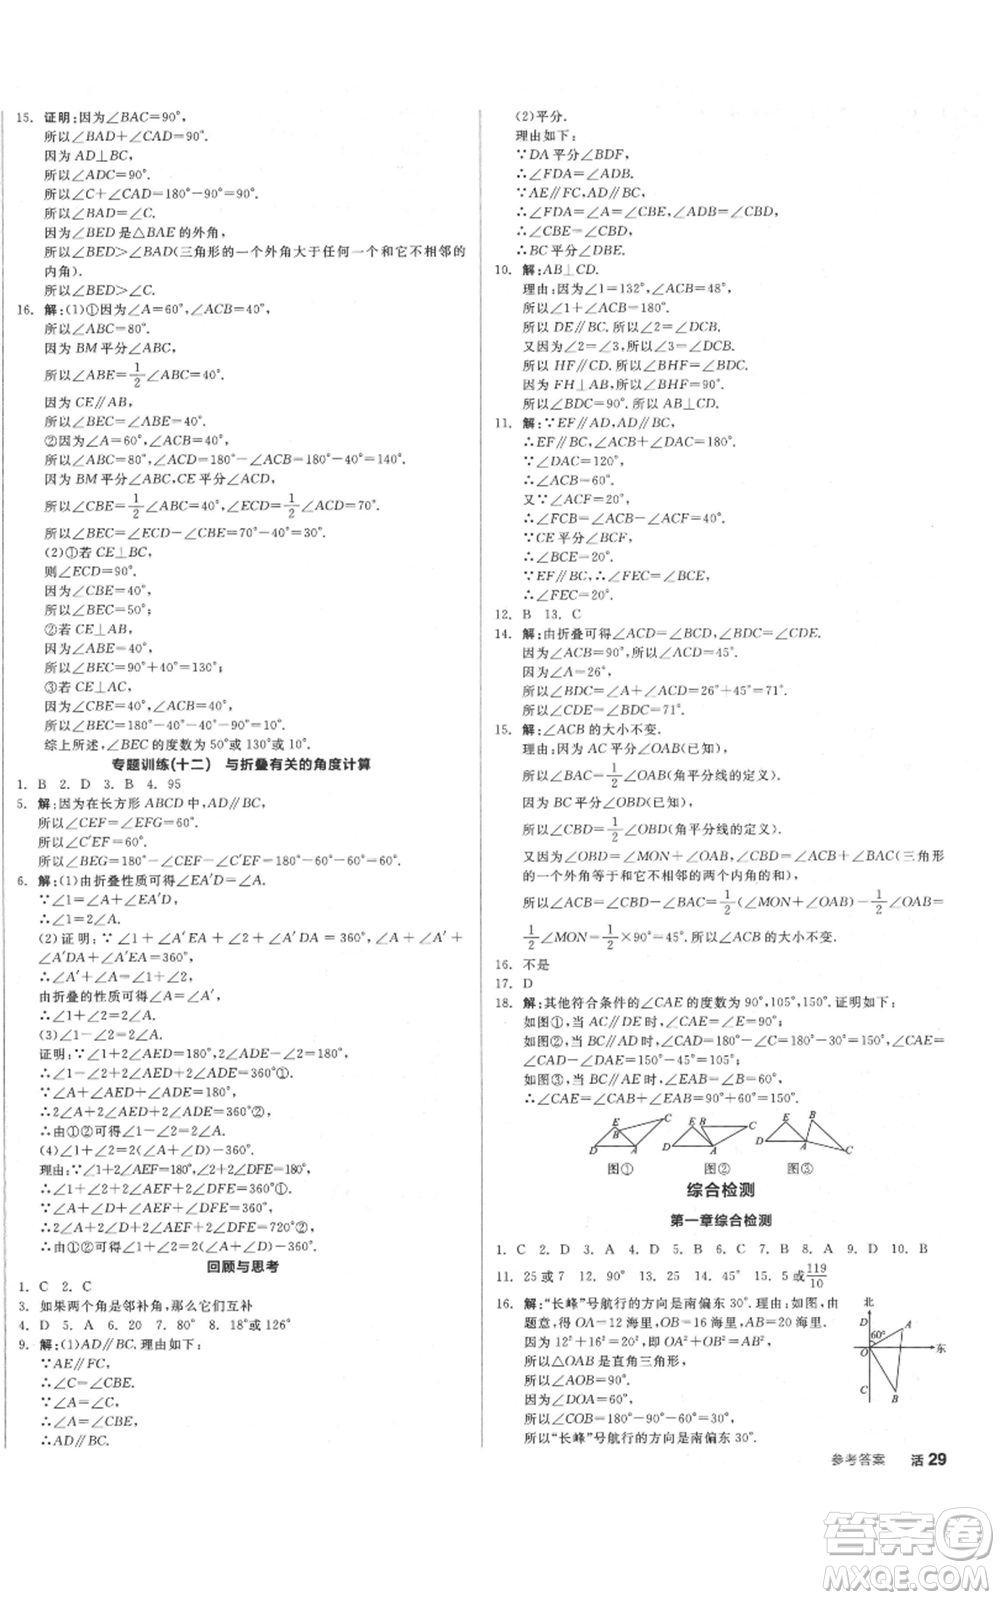 15. 证明:因为∠BAC=90°,
所以∠BAD+∠CAD=90°.
因为 AD⊥BC,
所以∠ADC=90°.
所以∠C+∠CAD=180°-90°=90°.
所以∠BAD=∠C.
因为∠BED 是△BAE 的外角,
所以∠BED>∠BAD(三角形的一个外角大于任何一个和它不相邻的
内角).
所以∠BED>∠C.
16. 解:(1)①因为∠A=60°,∠ACB=40°,
所以∠ABC=80°.
因为 BM 平分∠ABC,
所以∠ABE=1/2∠ABC=40°.
因为 CE∥AB,
所以∠BEC=∠ABE=40°.
②因为∠A=60°,∠ACB=40°,
所以∠ABC=80°,∠ACD=180°-∠ACB=180°-40°=140°.
因为 BM 平分∠ABC,CE 平分∠ACD,
所以∠CBE=1/2∠ABC=40°,∠ECD=1/2∠ACD=70°.
所以∠BEC=∠ECD-∠CBE=70°-40°=30°.
(2)①若 CE⊥BC,
则∠ECD=90°.
因为∠CBE=40°,
所以∠BEC=50°;
②若 CE⊥AB,
因为∠ABE=40°,
所以∠BEC=90°+40°=130°;
③若 CE⊥AC,
因为∠CBE=40°,∠ACB=40°,
所以∠BEC=180°-40°-40°-90°=10°.
综上所述,∠BEC 的度数为 50°或 130°或 10°.
专题训练(十二) 与折叠有关的角度计算
1. B 2. D 3. B 4. 95
5. 解:因为在长方形 ABCD 中,AD∥BC,
所以∠CEF=∠EFG=60°.
所以∠C′EF=60°.
所以∠BEG=180°-∠CEF-∠C′EF=180°-60°-60°=60°.
6. 解:(1)由折叠性质可得∠EA′D=∠A.
∵∠1=∠A+∠EA′D,
∴∠1=2∠A.
(2)证明:∵∠1+∠A′EA+∠2+∠A′DA=360°,∠A+∠A′+
∠A′DA+∠A′EA=360°,
∴∠A′+∠A=∠1+∠2.
由折叠的性质可得∠A=∠A′,
∴∠1+∠2=2∠A.
(3)∠1-∠2=2∠A.
证明:∵∠1+2∠AED=180°,2∠ADE-∠2=180°,
∴∠1-∠2+2∠AED+2∠ADE=360°①.
∵∠A+∠AED+∠ADE=180°,
∴2∠A+2∠AED+2∠ADE=360°②,
∴由①②可得∠1-∠2=2∠A.
(4)∠1+∠2=2(∠A+∠D)-360°.
理由:∵∠1+2∠AEF=180°,∠2+2∠DFE=180°,
∴∠1+∠2+2∠AEF+2∠DFE=360°①.
∵∠A+∠D+∠AEF+∠DFE=360°,
∴2∠A+2∠D+2∠AEF+2∠DFE=720°②,
∴由①②可得∠1+∠2=2(∠A+∠D)-360°.
回顾与思考
1. C 2. C
3. 如果两个角是邻补角,那么它们互补
4. D 5. A 6. 20 7. 80° 8. 18°或 126°
9. 解:(1)AD∥BC.理由如下:
∵AE∥FC,
∴∠C=∠CBE.
∵∠A=∠C,
∴∠A=∠CBE,
∴AD∥BC.
(2)平分.
理由如下:
∵DA 平分∠BDF,
∴∠FDA=∠ADB.
∵AE∥FC,AD∥BC,
∴∠FDA=∠A=∠CBE,∠ADB=∠CBD,
∴∠CBE=∠CBD,
∴BC 平分∠DBE.
10. 解:AB⊥CD.
理由:因为∠1=132°,∠ACB=48°,
所以∠1+∠ACB=180°.
所以 DE∥BC.所以∠2=∠DCB.
又因为∠2=∠3,所以∠3=∠DCB.
所以 HF∥CD.所以∠BHF=∠BDC.
因为 FH⊥AB,所以∠BHF=90°.
所以∠BDC=90°.所以 AB⊥CD.
11. 解:∵EF∥AD,AD∥BC,
∴EF∥BC,∠ACB+∠DAC=180°.
∵∠DAC=120°,
∴∠ACB=60°.
又∵∠ACF=20°,
∴∠FCB=∠ACB-∠ACF=40°.
∵CE 平分∠BCF,
∴∠BCE=20°.
∵EF∥BC,∴∠FEC=∠BCE,
∴∠FEC=20°.
12. B 13. C
14. 解:由折叠可得∠ACD=∠BCD,∠BDC=∠CDE.
因为∠ACB=90°,所以∠ACD=45°.
因为∠A=26°,
所以∠BDC=∠A+∠ACD=26°+45°=71°.
所以∠CDE=∠BDC=71°.
15. 解:∠ACB 的大小不变.
理由:因为 AC 平分∠OAB(已知),
所以∠BAC=1/2∠OAB(角平分线的定义).
因为 BC 平分∠OBD(已知),
所以∠CBD=1/2∠OBD(角平分线的定义).
又因为∠OBD=∠MON+∠OAB,∠CBD=∠ACB+∠BAC(三角形
的一个外角等于和它不相邻的两个内角的和),
所以∠ACB=∠CBD-∠BAC=1/2(∠MON+∠OAB)-1/2∠OAB=
1/2∠MON=1/2×90°=45°.所以∠ACB 的大小不变.
16. 不是
17. D
18. 解:其他符合条件的∠CAE 的度数为 90°,105°,150°.证明如下:
如图①,当 AC∥DE 时,∠CAE=∠E=90°;
如图②,当 BC∥AD 时,∠CAD=180°-∠C=180°-30°=150°,
∠CAE=∠CAD-∠DAE=150°-45°=105°;
如图③,当 BC∥AE 时,∠EAB=∠B=90°,
∴∠CAE=∠CAB+∠EAB=60°+90°=150°.
E C B D A
E B C D A
E B D A C
图① 图② 图③
综合检测
第一章综合检测
1. C 2. D 3. A 4. D 5. B 6. C 7. B 8. A 9. D 10. B
11. 25 或 7 12. 90° 13. 25 14. 45° 15. 5 或119/10
16. 解:“长峰”号航行的方向是南偏东 30°.理由:如图,由
题意,得 OA=12 海里,OB=16 海里,AB=20 海里.
因为 12²+16²=20²,即 OA²+OB²=AB²,
所以△OAB 是直角三角形.
所以∠AOB=90°.
因为∠DOA=60°,
所以∠COB=180°-90°-60°=30°.
所以“长峰”号航行的方向是南偏东 30°.
北
D
60° A
O 东
C B
参考答案 活 29
答案卷
MXQE.COM